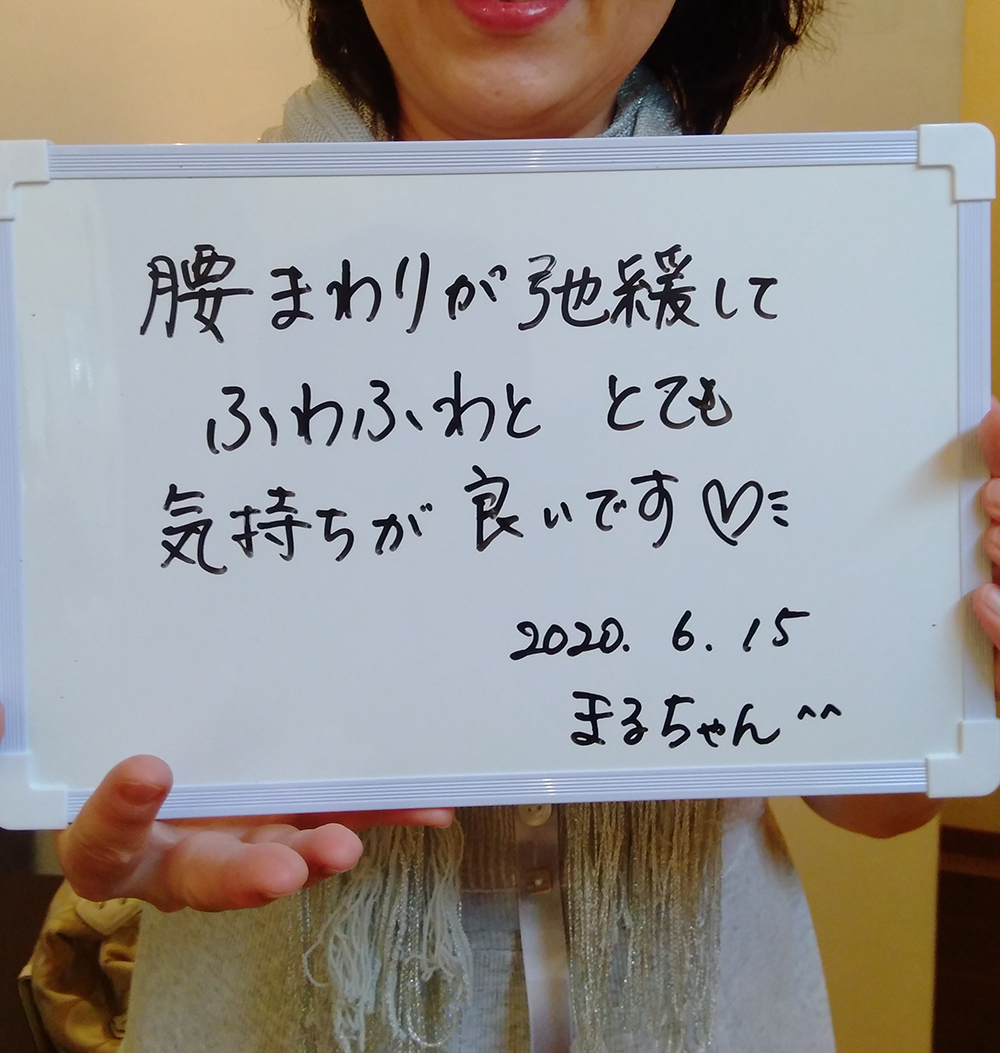 腰まわりが弛緩して
ふわふわと とても
気持ちが良いです♡
2020. 6. 15
まるちゃん^^